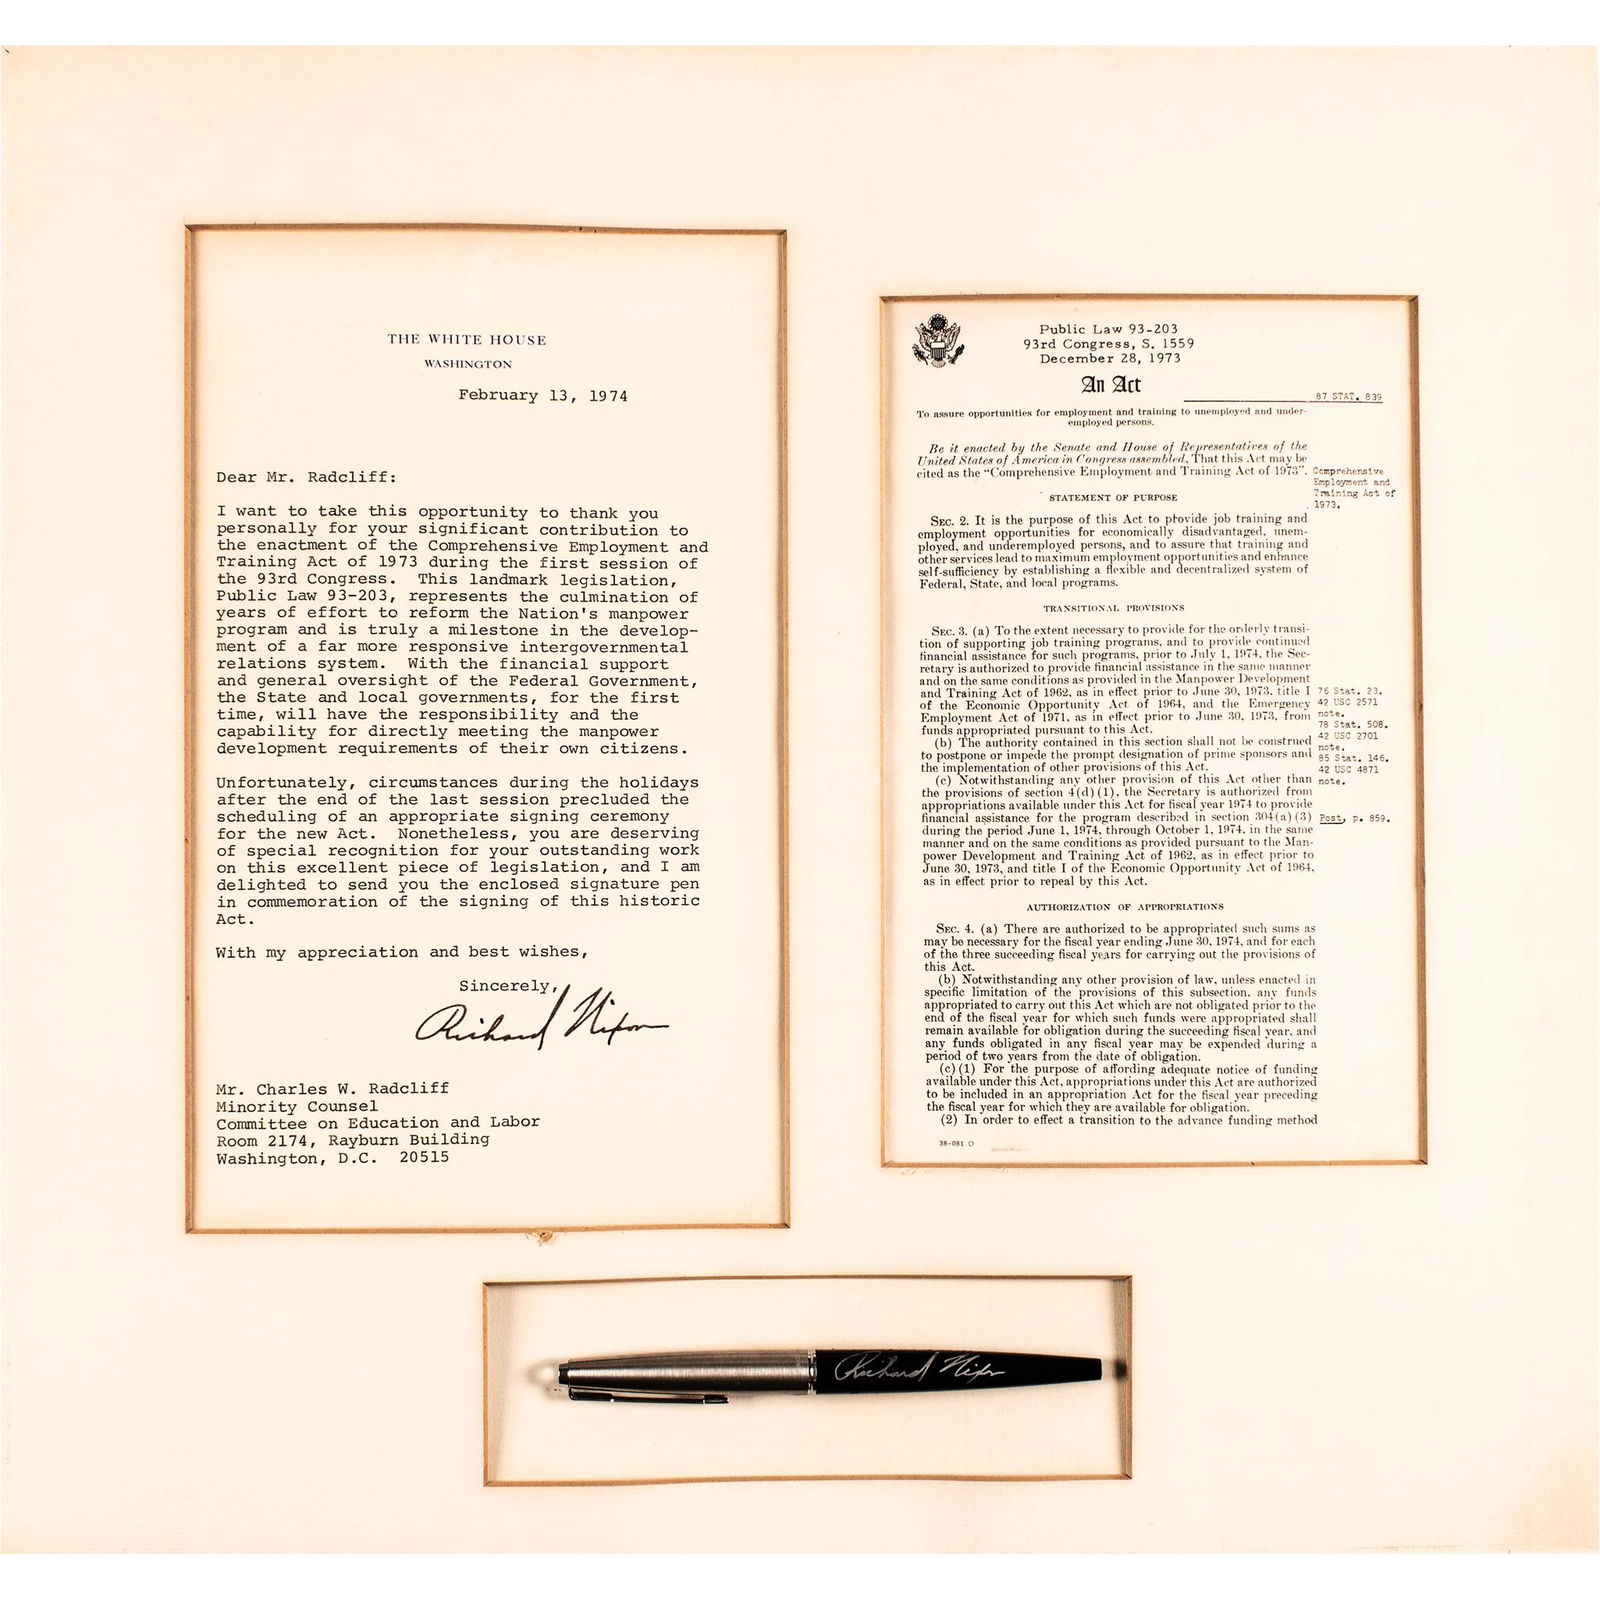 THE WHITE HOUSE
WASHINGTON
February 13, 1974
Dear Mr. Radcliff:
I want to take this opportunity to thank you
personally for your significant contribution to
the enactment of the Comprehensive Employment and
Training Act of 1973 during the first session of
the 93rd Congress.  This landmark legislation,
Public Law 93-203, represents the culmination of
years of effort to reform the Nation's manpower
program and is truly a milestone in the develop-
ment of a far more responsive intergovernmental
relations system.  With the financial support
and general oversight of the Federal Government,
the State and local governments, for the first
time, will have the responsibility and the
capability for directly meeting the manpower
development requirements of their own citizens.
Unfortunately, circumstances during the holidays
after the end of the last session precluded the
scheduling of an appropriate signing ceremony
for the new Act.  Nonetheless, you are deserving
of special recognition for your outstanding work
on this excellent piece of legislation, and I am
delighted to send you the enclosed signature pen
in commemoration of the signing of this historic
Act.
With my appreciation and best wishes,
Sincerely,
Richard Nixon
Mr. Charles W. Radcliff
Minority Counsel
Committee on Education and Labor
Room 2174, Rayburn Building
Washington, D.C.  20515
Public Law 93-203
93rd Congress, S. 1559
December 28, 1973
An Act
87 STAT. 839
To assure opportunities for employment and training to unemployed and under-
employed persons.
Be it enacted by the Senate and House of Representatives of the
United States of America in Congress assembled, That this Act may be
cited as the "Comprehensive Employment and Training Act of 1973".
Comprehensive
Employment and
Training Act of
1973.
STATEMENT OF PURPOSE
SEC. 2. It is the purpose of this Act to provide job training and
employment opportunities for economically disadvantaged, unem-
ployed, and underemployed persons, and to assure that training and
other services lead to maximum employment opportunities and enhance
self-sufficiency by establishing a flexible and decentralized system of
Federal, State, and local programs.
TRANSITIONAL PROVISIONS
SEC. 3. (a) To the extent necessary to provide for the orderly transi-
tion of supporting job training programs, and to provide continued
financial assistance for such programs, prior to July 1, 1974, the Sec-
retary is authorized to provide financial assistance in the same manner
and on the same conditions as provided in the Manpower Development
and Training Act of 1962, as in effect prior to June 30, 1973, title I
of the Economic Opportunity Act of 1964, and the Emergency
Employment Act of 1971, as in effect prior to June 30, 1973, from
funds appropriated pursuant to this Act.
(b) The authority contained in this section shall not be construed
to postpone or impede the prompt designation of prime sponsors and
the implementation of other provisions of this Act.
(c) Notwithstanding any other provision of this Act other than
the provisions of section 4(d)(1), the Secretary is authorized from
appropriations available under this Act for fiscal year 1974 to provide
financial assistance for the program described in section 304(a)(3)
during the period June 1, 1974, through October 1, 1974, in the same
manner and on the same conditions as provided pursuant to the Man-
power Development and Training Act of 1962, as in effect prior to
June 30, 1973, and title I of the Economic Opportunity Act of 1964,
as in effect prior to repeal by this Act.
76 Stat. 23.
42 USC 2571
note.
78 Stat. 508.
42 USC 2701
note.
85 Stat. 146.
42 USC 4871
note.
Post, p. 859.
AUTHORIZATION OF APPROPRIATIONS
SEC. 4. (a) There are authorized to be appropriated such sums as
may be necessary for the fiscal year ending June 30, 1974, and for each
of the three succeeding fiscal years for carrying out the provisions of
this Act.
(b) Notwithstanding any other provision of law, unless enacted in
specific limitation of the provisions of this subsection, any funds
appropriated to carry out this Act which are not obligated prior to the
end of the fiscal year for which such funds were appropriated shall
remain available for obligation during the succeeding fiscal year, and
any funds obligated in any fiscal year may be expended during a
period of two years from the date of obligation.
(c)(1) For the purpose of affording adequate notice of funding
available under this Act, appropriations under this Act are authorized
to be included in an appropriation Act for the fiscal year preceding
the fiscal year for which they are available for obligation.
(2) In order to effect a transition to the advance funding method
38-081 O
Richard Nixon